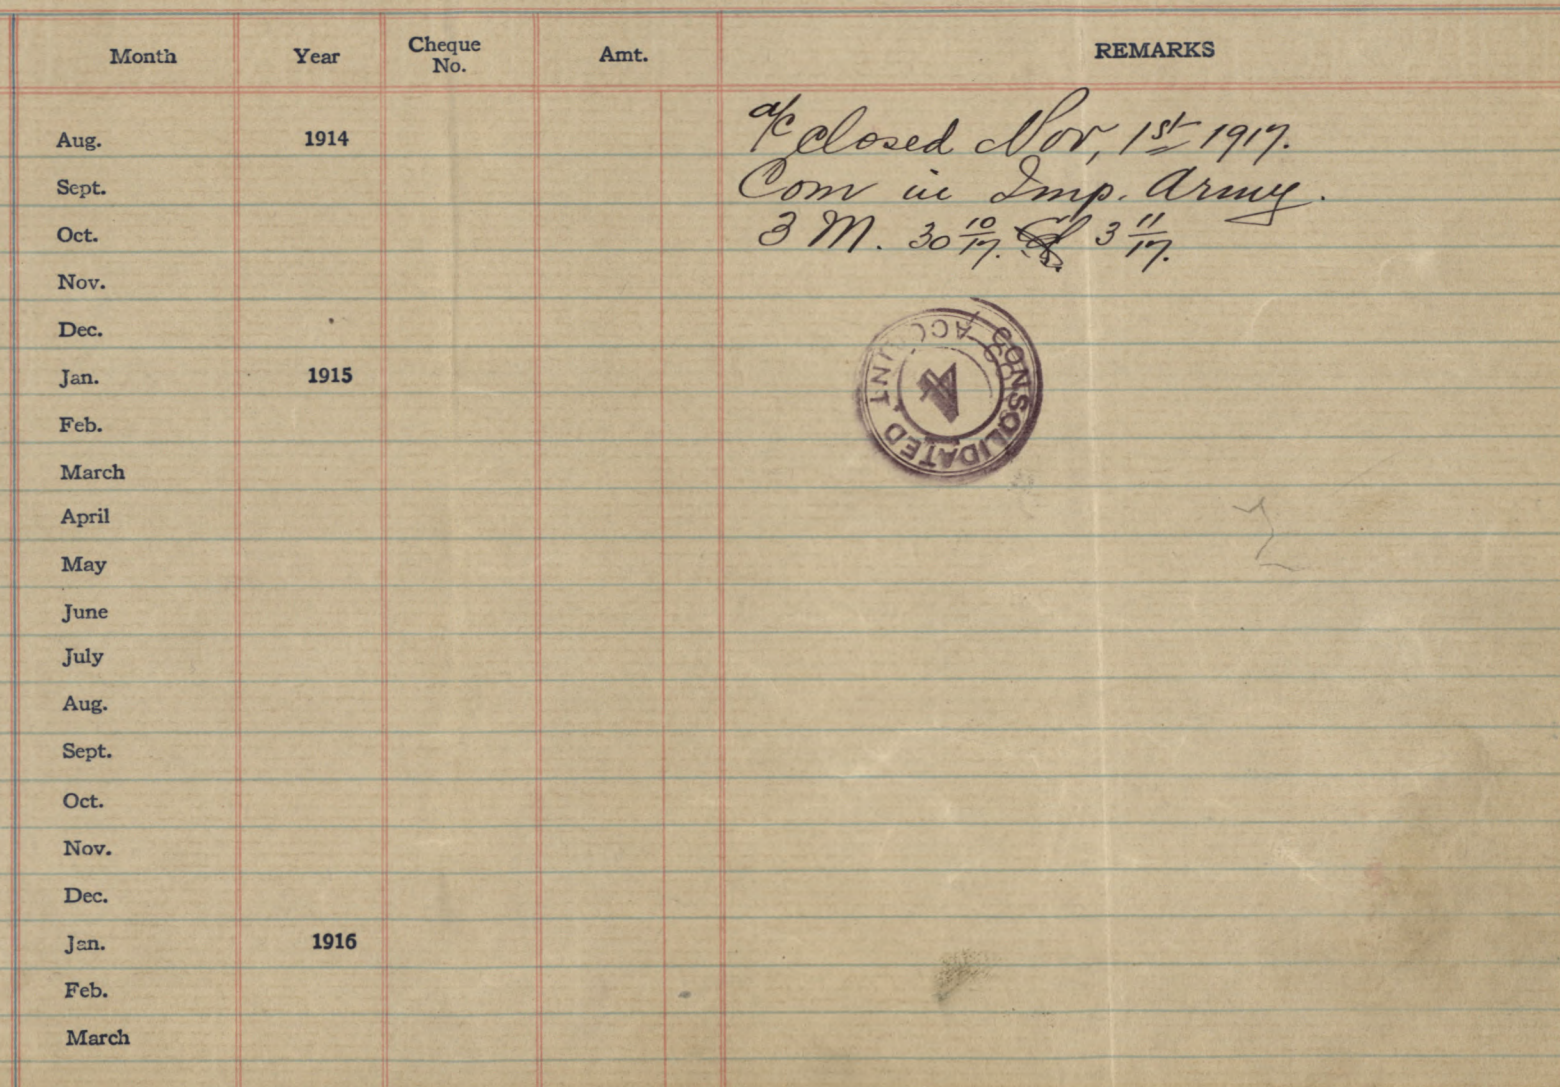 Month Year Cheque No. Amt. REMARKS
Aug. 1914 a/c closed Nov, 1st 1917.
Sept. Com in Imp. Army.
Oct. 3 M. 30 10/17. 3 11/17.
Nov.
Dec.
Jan. 1915
CONSOLIDATED ACCOUNT
Feb.
March
April
May
June
July
Aug.
Sept.
Oct.
Nov.
Dec.
Jan. 1916
Feb.
March